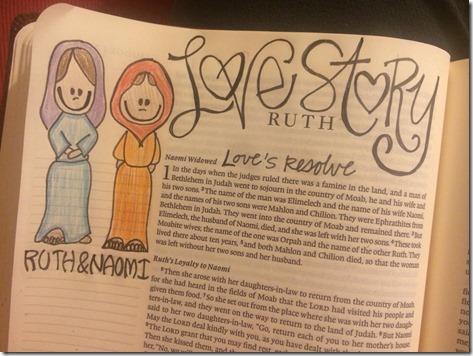 LOVE STORY
RUTH
Naomi Widowed Love's Resolve
1 In the days when the judges ruled there was a famine in the land, and a man of
Bethlehem in Judah went to sojourn in the country of Moab, he and his wife and
his two sons. 2 The name of the man was Elimelech and the name of his wife Naomi,
and the names of his two sons were Mahlon and Chilion. They were Ephrathites from
Bethlehem in Judah. They went into the country of Moab and remained there. 3 But
Elimelech, the husband of Naomi, died, and she was left with her two sons. 4 These took
Moabite wives; the name of the one was Orpah and the name of the other Ruth. They
lived there about ten years, 5 and both Mahlon and Chilion died, so that the woman
was left without her two sons and her husband.
RUTH & NAOMI
Ruth's Loyalty to Naomi
6 Then she arose with her daughters-in-law to return from the country of Moab,
for she had heard in the fields of Moab that the LORD had visited his people and
given them food. 7 So she set out from the place where she was with her two daugh-
ters-in-law, and they went on the way to return to the land of Judah. 8 But Naomi
said to her two daughters-in-law, "Go, return each of you to her mother's house.
May the LORD deal kindly with you, as you have dealt with
9 The LORD grant that you may find rest,
Then she kissed them, and
her, "No, we